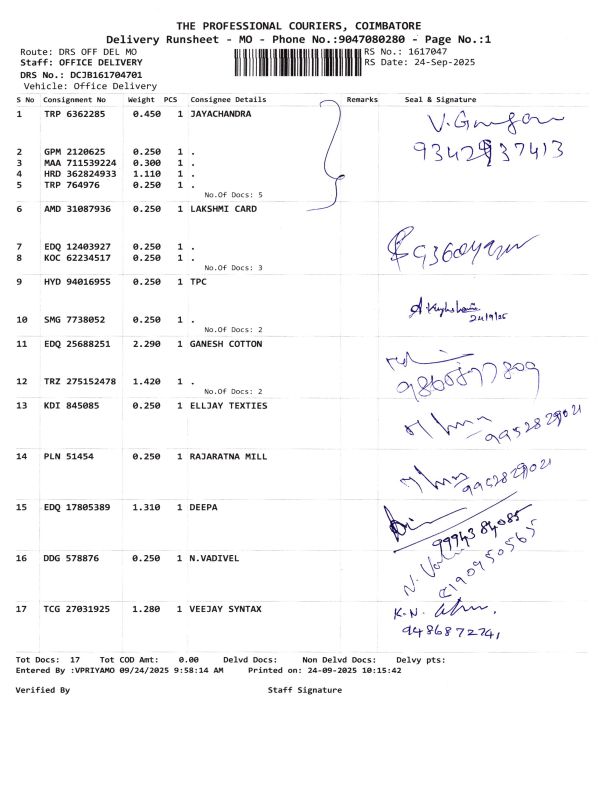 THE PROFESSIONAL COURIERS, COIMBATORE
Delivery Runsheet - MO - Phone No.:9047080280 - Page No.:1
Route: DRS OFF DEL MO RS No.: 1617047
Staff: OFFICE DELIVERY RS Date: 24-Sep-2025
DRS No.: DCJB161704701
Vehicle: Office Delivery
S No Consignment No Weight PCS Consignee Details Remarks Seal & Signature
1 TRP 6362285 0.450 1 JAYACHANDRA
2 GPM 2120625 0.250 1 .
3 MAA 711539224 0.300 1 .
4 HRD 362824933 1.110 1 .
5 TRP 764976 0.250 1 .
No.Of Docs: 5
6 AMD 31087936 0.250 1 LAKSHMI CARD
7 EDQ 12403927 0.250 1 .
8 KOC 62234517 0.250 1 .
No.Of Docs: 3
9 HYD 94016955 0.250 1 TPC
24/9/25
10 SMG 7738052 0.250 1 .
No.Of Docs: 2
11 EDQ 25688251 2.290 1 GANESH COTTON
12 TRZ 275152478 1.420 1 .
No.Of Docs: 2
13 KDI 845085 0.250 1 ELLJAY TEXTIES
9952829021
14 PLN 51454 0.250 1 RAJARATNA MILL
9952829021
15 EDQ 17805389 1.310 1 DEEPA
9994384085
16 DDG 578876 0.250 1 N.VADIVEL
17 TCG 27031925 1.280 1 VEEJAY SYNTAX
K.N.
9486872741
Tot Docs: 17 Tot COD Amt: 0.00 Delvd Docs: Non Delvd Docs: Delvy pts:
Entered By :VPRIYAMO 09/24/2025 9:58:14 AM Printed on: 24-09-2025 10:15:42
Verified By Staff Signature